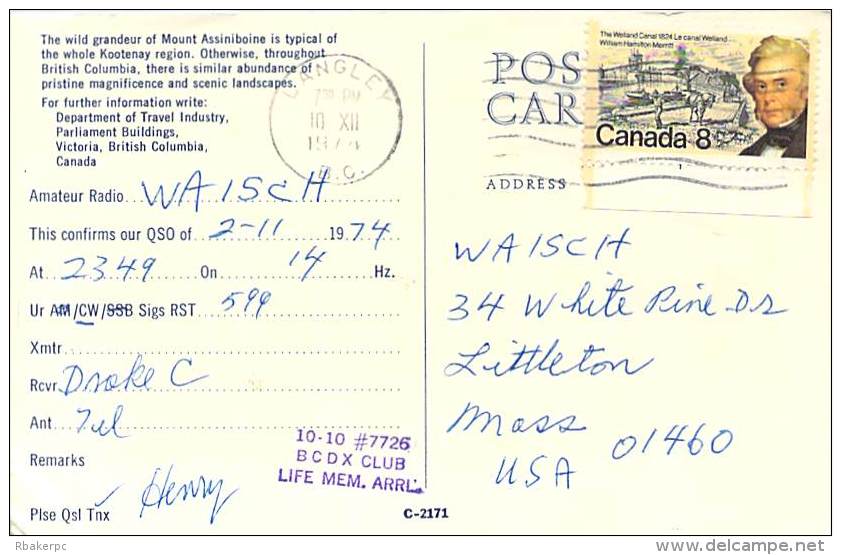 The wild grandeur of Mount Assiniboine is typical of
the whole Kootenay region. Otherwise, throughout
British Columbia, there is similar abundance of
pristine magnificence and scenic landscapes.
For further information write:
Department of Travel Industry,
Parliament Buildings,
Victoria, British Columbia,
Canada
LANGLEY
PM
10 XII
B.C.
Amateur Radio WA1SCH
This confirms our QSO of 2-11 1974
At 2349 On 14 Hz.
Ur AM/CW/SSB Sigs RST 599
Xmtr
Rcvr Drake C
Ant
Remarks
Plse Qsl Tnx Henry
10-10 #7726
BCDX CLUB
LIFE MEM. ARRL
C-2171
POS
CAR
ADDRESS
The Welland Canal 1824 Le canal Welland
William Hamilton Merritt
Canada 8
1
WA1SCH
34 White Pine Dr
Littleton
Mass 01460
USA
Rbakerpc
delcampe.net